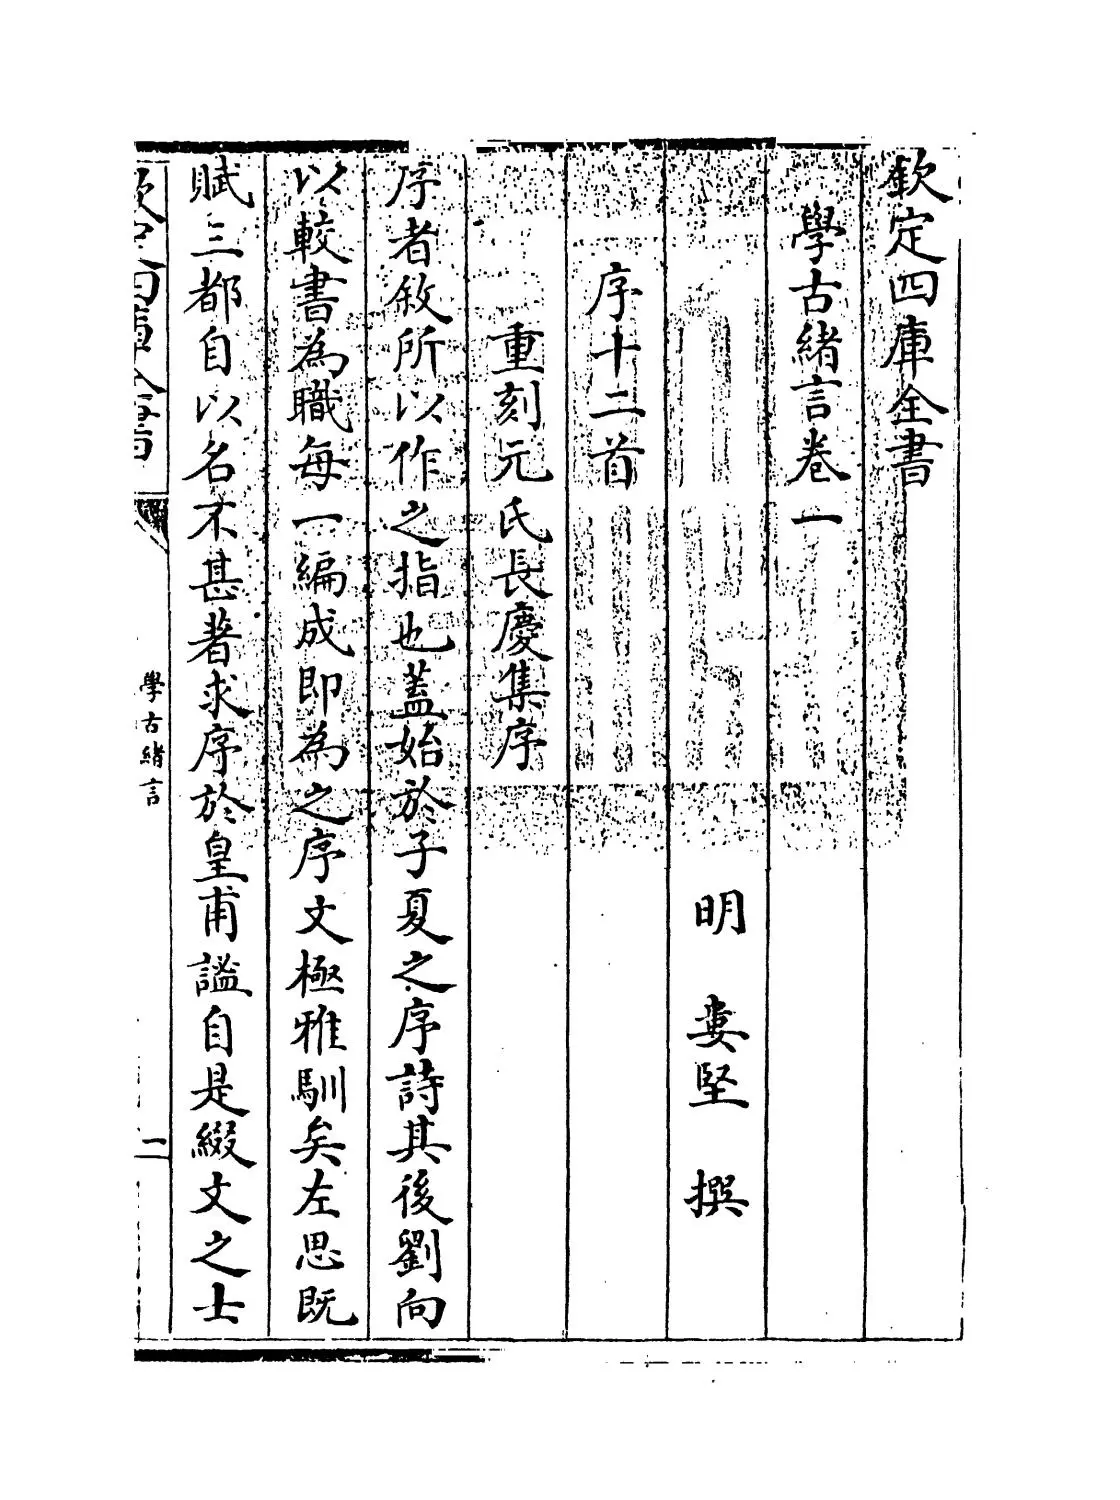 欽定四庫全書
學古緒言卷一
明 婁堅 撰
序十二首
重刻元氏長慶集序
序者敘所以作之指也蓋始於子夏之序詩其後劉向
以較書為職每一編成即為之序文極雅馴矣左思既
賦三都自以名不甚著求序於皇甫謐自是綴文之士
欽定四庫全書
學古緒言
二